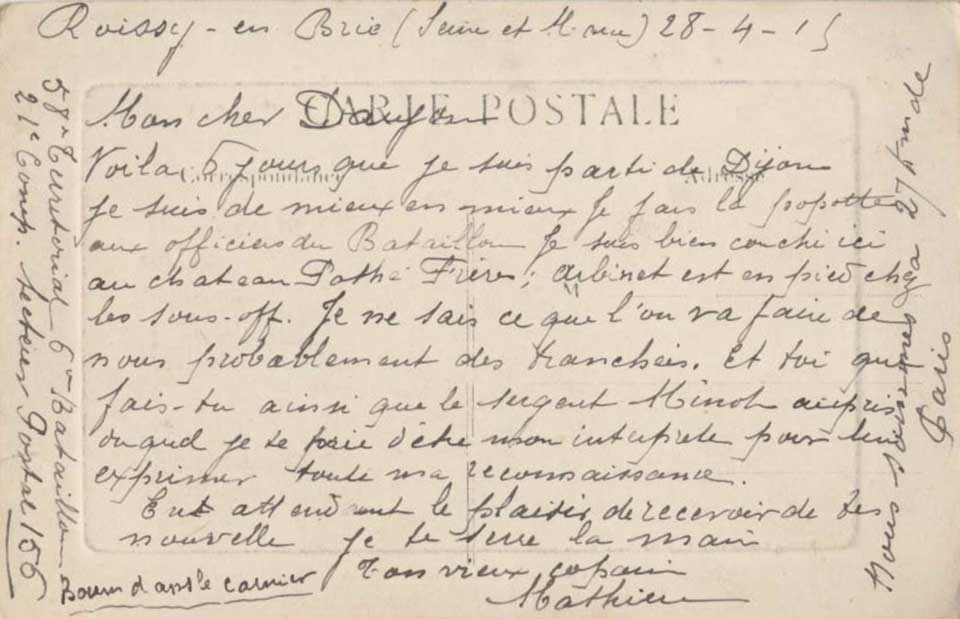 Roissy-en Brie (Seine et M-rne) 28-4-15
CARTE POSTALE
Mon cher
Correspondance
Adresse
Voila 5 jours que je suis parti de Dijon
je suis de mieux en mieux je fais la popotte
aux officiers du Bataillon Je suis bien couché ici
au chateau Pathé Frères; Arbinet est en pied chez
les sous-off. Je ne sais ce que l'on va faire de
nous probablement des tranchées. Et toi que
fais-tu ainsi que le sergent Minot auprès
duquel je te prie d'être mon interprete pour leur
exprimer toute ma reconnaissance.
En attendant le plaisir de recevoir de tes
nouvelle je te serre la main
Ton vieux copain
Mathieu
58e Territorial 6e Bataillon
21e Comp. Secteur Postal 156
Nous sommes a 27 Km de
Paris